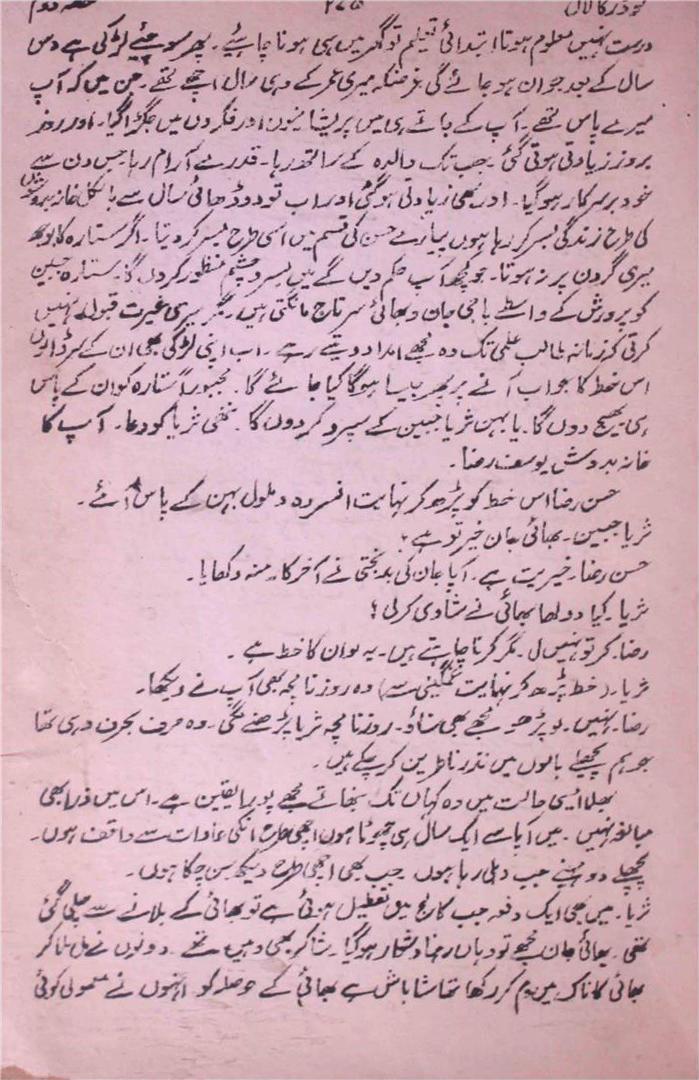 گودڑ کا لال ۲۷۵ حصہ دوم
درست نہیں معلوم ہوتا ابتدائی تعلیم تو گھر میں ہی ہونا چاہئیے۔ پھر سوچئیے لڑکی ہے دس
سال کے بعد جوان ہو جائے گی غرضکہ میری عمر کے وہی سال اچھے تھے۔ جن میں کہ آپ
میرے پاس تھے۔ آپ کے جاتے ہی میں پریشانیوں اور فکروں میں جکڑا گیا۔ اور روز
بروز زیادتی ہوتی گئی۔ جب تک والدہ کے ساتھ رہا۔ قدرے آرام رہا جس دن سے
خود برسرکار ہو گیا۔ اور بھی زیادتی ہو گئی اور اب تو دو ڈھائی سال سے بالکل خانہ بدوشوں
کی طرح زندگی بسر کر رہا ہوں پیارے حسن کی قسم میں اسی طرح بسر کر دیتا۔ اگر ستارہ کا بوجھ
میری گردن پر نہ ہوتا۔ جو کچھ آپ حکم دیں گے میں بسر و چشم منظور کر دں گا۔ ستارہ جبین
کو پرورش کے واسطے باجی جان و بھائی سرتاج مانگتی ہیں۔ مگر میری غیرت قبول نہیں
کرتی کہ زمانہ طالب علمی تک وہ مجھے امداد دیتے رہے۔ اب اپنی لڑکی بھی ان کے سر ڈالوں
اس خط کا جواب آنے پر پھر جیسا ہوگا کیا جائے گا۔ مجبوراً ستارہ کو ان کے پاس
ہی بھیج دوں گا۔ یا بہن ثریا جبین کے سپرد کر دوں گا۔ ننھی ثریا کو دعا۔ آپ کا
خانہ بدوش یوسف رضا۔
حسن رضا اس خط کو پڑھ کر نہایت افسردہ و ملول بہن کے پاس آئے۔
ثریا جبین۔ بھائی جان خیر تو ہے؟
حسن رضا۔ خیریت ہے۔ آپا جان کی بدبختی نے آخر کار منہ دکھایا۔
ثریا۔ کیا دولھا بھائی نے شادی کرلی؟
رضا۔ کر تو نہیں لی۔ مگر کرنا چاہتے ہیں۔ یہ لو ان کا خط ہے۔
ثریا۔ (خط پڑھ کر نہایت غمگینی سے) وہ روزنامچہ بھی آپ نے دیکھا۔
رضا۔ نہیں۔ لو پڑھو مجھے بھی سناؤ۔ روزنامچہ ثریا پڑھنے لگی۔ وہ حرف بحرف وہی تھا
جو ہم پچھلے بابوں میں نذر ناظرین کر چکے ہیں۔
بھلا ایسی حالت میں وہ کہاں تک نبھاتے مجھے پورا یقین ہے۔ اس میں ذرا بھی
مبالغہ نہیں۔ میں آپا سے ایک سال ہی چھوٹا ہوں اچھی طرح انکی عادات سے واقف ہوں۔
پچھلے دو مہینے جب دہلی رہا ہوں جب بھی اچھی طرح دیکھ سن چکا ہوں۔
ثریا۔ میں بھی ایک دفعہ جب کالج میں تعطیل ہوئی ہے تو بھائی کے بلانے سے چلی گئی
تھی۔ بھائی جان مجھے تو وہاں رہنا دشوار ہو گیا۔ شاکر بھی وہیں تھے۔ دونوں نے مل ملا کر
بھائی کا ناک میں دم کر رکھا تھا شاباش ہے بھائی کے حوصلہ کو انہوں نے معمولی کوئی